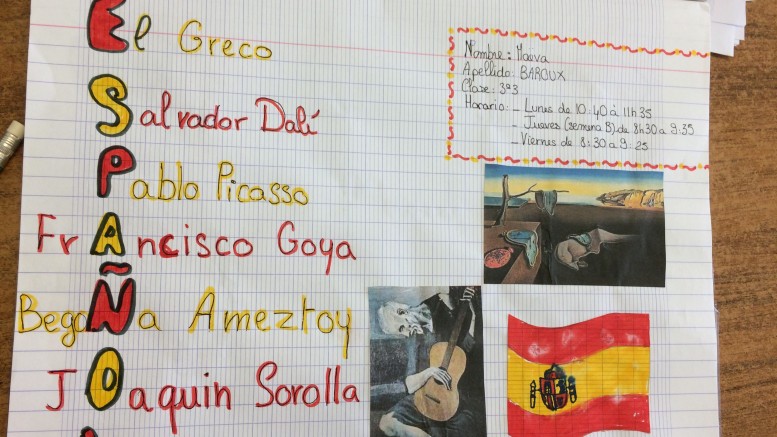 El Greco
Salvador Dalí
Pablo Picasso
FrAncisco Goya
BegoÑa Ameztoy
JOaquin Sorolla
Nombre : Maëva
Apellido : BAROUX
Clase : 3º3
Horario : - Lunes de 10:40 à 11h35
- Jueves (semena B) de 8h30 a 9:35
- Viernes de 8:30 a 9:25